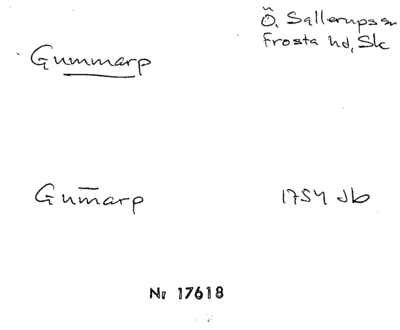 Ö. Sallerups sn
Frosta hd, Sk
Gummarp
Gum̄arp 1754 Jb
Nr 17618